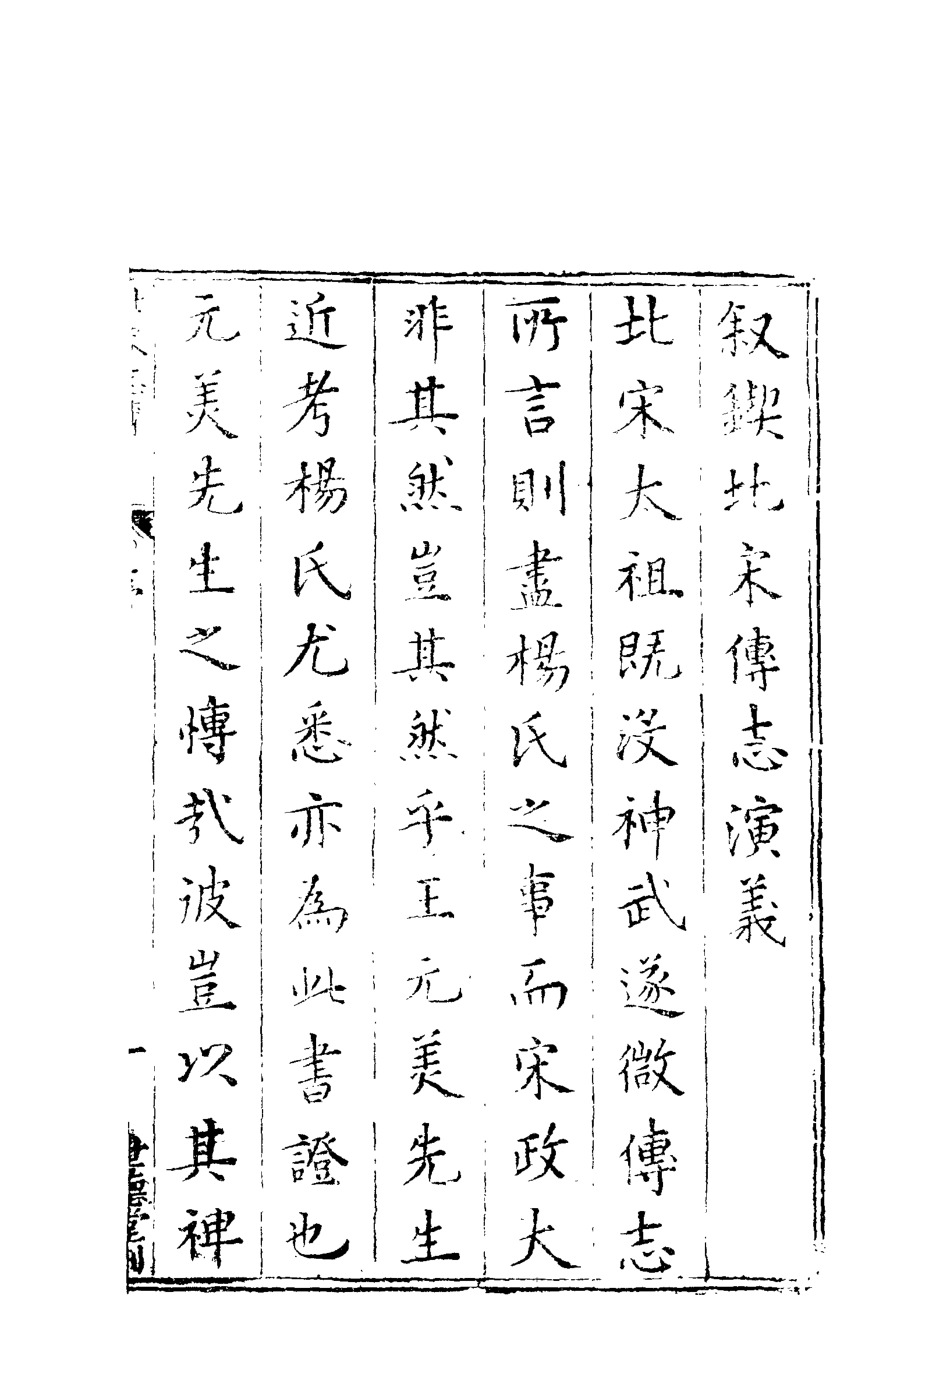 叙鍥北宋傳志演義
北宋太祖既没神武遂微傳志
所言則盡楊氏之事而宋政大
非其然豈其然乎王元美先生
近考楊氏尤悉亦為此書證也
元美先生之慱哉彼豈以其裨
一
世德堂刊